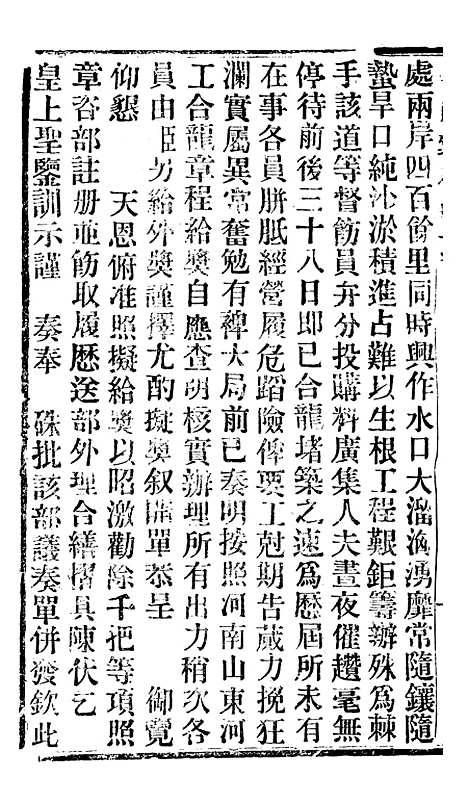 處兩岸四百餘里同時興作水口大溜洶湧靡常隨鑲隨
蟄旱口純沙淤積進占難以生根工程艱鉅籌辦殊爲棘
手該道等督飭員弁分投購料廣集人夫晝夜催趲毫無
停待前後三十八日卽已合龍堵築之速爲歷屆所未有
在事各員胼胝經營履危蹈險俾要工尅期告蕆力挽狂
瀾實屬異常奮勉有裨大局前已奏明按照河南山東河
工合龍章程給奬自應查明核實辦理所有出力稍次各
員由臣另給外奬謹擇尤酌擬奬叙開單恭呈　御覽
仰懇　天恩俯准照擬給奬以昭激勸除千把等項照
章咨部註册並飭取履歷送部外理合繕摺具陳伏乞
皇上聖鑒訓示謹　奏奉　硃批該部議奏單併發欽此